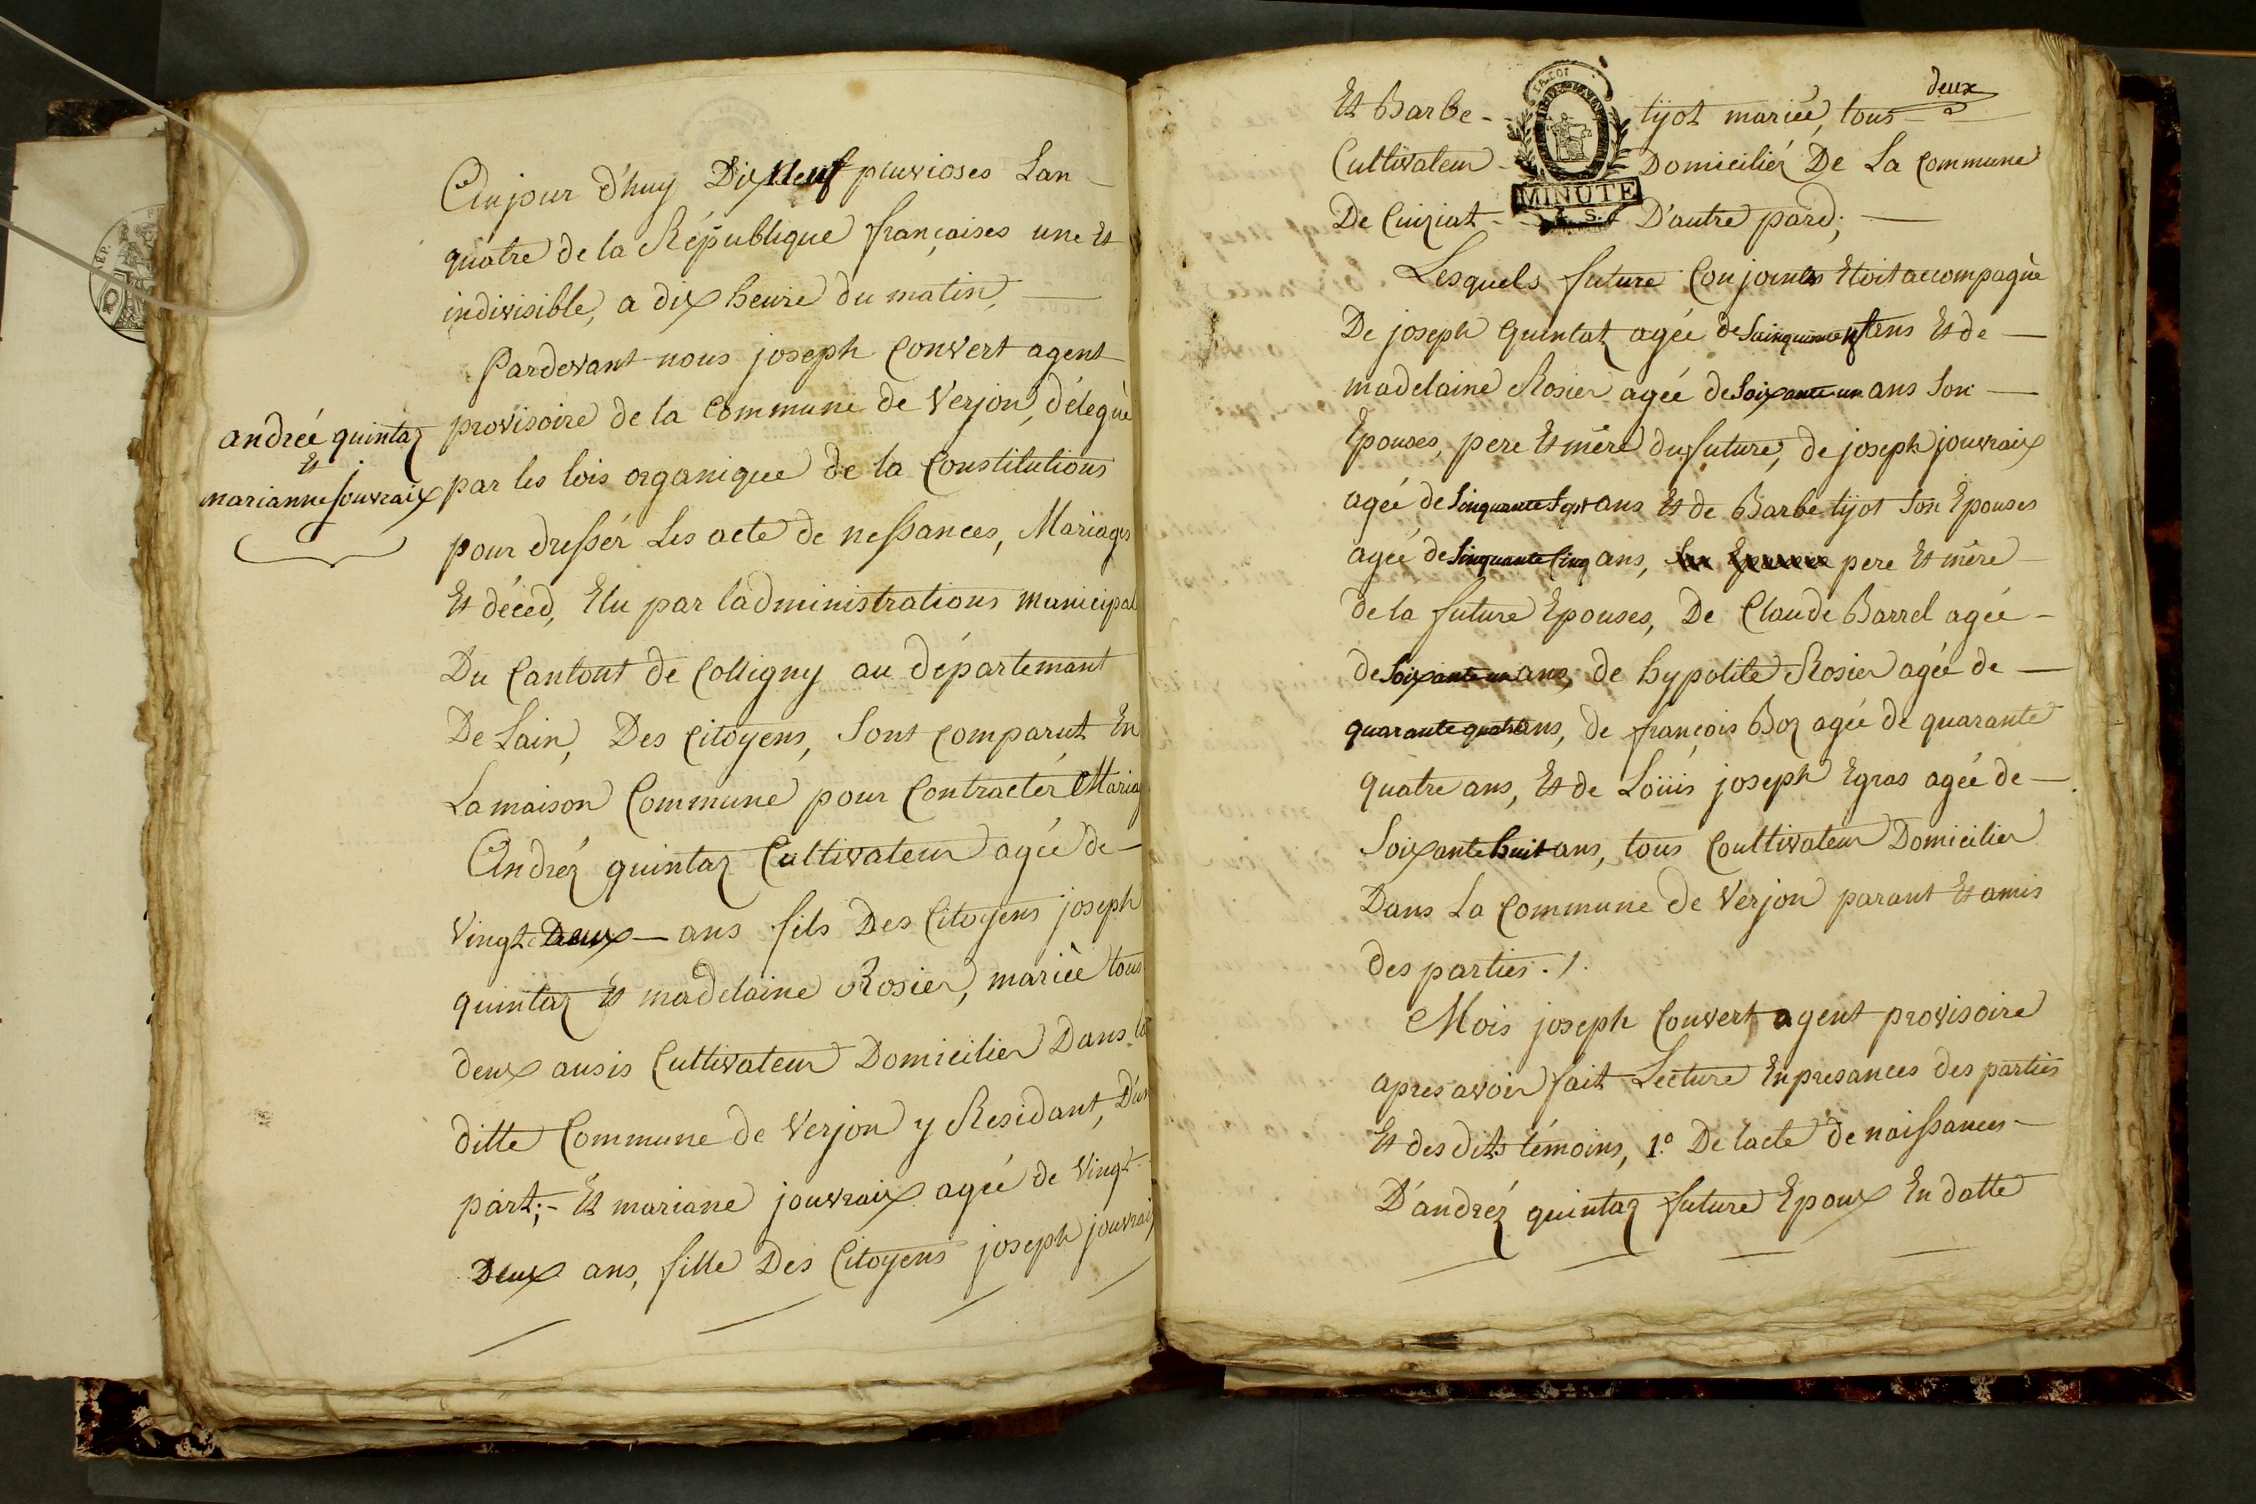 Aujour d'huy Dix Neuf pluvioses Lan
quatre de la République françaises une Et
indivisible, a dix heure du matin,
Pardevant nous joseph Convert agent
provisoire de la Commune de Verjon, délegué
par les lois organique de la Constitutions
pour dressér Les acte de nessances, Mariages
Et décéd, Elu par ladministrations municipal
Du Cantont de Colligny au départemant
De Lain, Des Citoyens, Sont Comparut En
La maison Commune pour Contractér Mariag
Andréz quintaz Cultivateur agée de
Vingt Deux ans fils Des Citoyens joseph
quintaz Et madelaine Rosier, mariée tous
deux ausis Cultivateur Domicilier Dans la
ditte Commune de Verjon y Residant, D'un
part; Et mariane jouvraix agée de Vingt
Deux ans, fille Des Citoyens joseph jouvraix
andréé quintaz
Et
marianne jouvraix
RÉP. F
Et Barbe tijot mariée, tous deux
Cultivateur Domiciliér De La Commune
De Cuiziat D'autre pard;
LA LOI
MINUTE
Lesquels future Conjoints Etoit accompagné
De joseph Quintaz agée de ans Et de
madelaine Rosier agée de Soixante un ans Son
Epouses, pere Et mère du future, de joseph jouvraix
agée de Sinquante Sept ans Et de Barbe tijot Son Epouses
agée de Sinquante Cinq ans, Son Epouses pere Et mère
de la future Epouses, De Claude Barrel agée
de Soixante un ans, de hypolite Rosier agée de
quarante quatre ans, de françois Boz agée de quarante
quatre ans, Et de Loüis joseph Egras agée de
Soixante huit ans, tous Coultivateur Domicilier
Dans La Commune de Verjon parant Et amis
des parties. /.
Mois joseph Convert agent provisoire
apres avoir fait Lecture En presances des parties
Et des dits témoins, 1.º De lacte de naissances
D'andréz quintaz future Epoux En datte